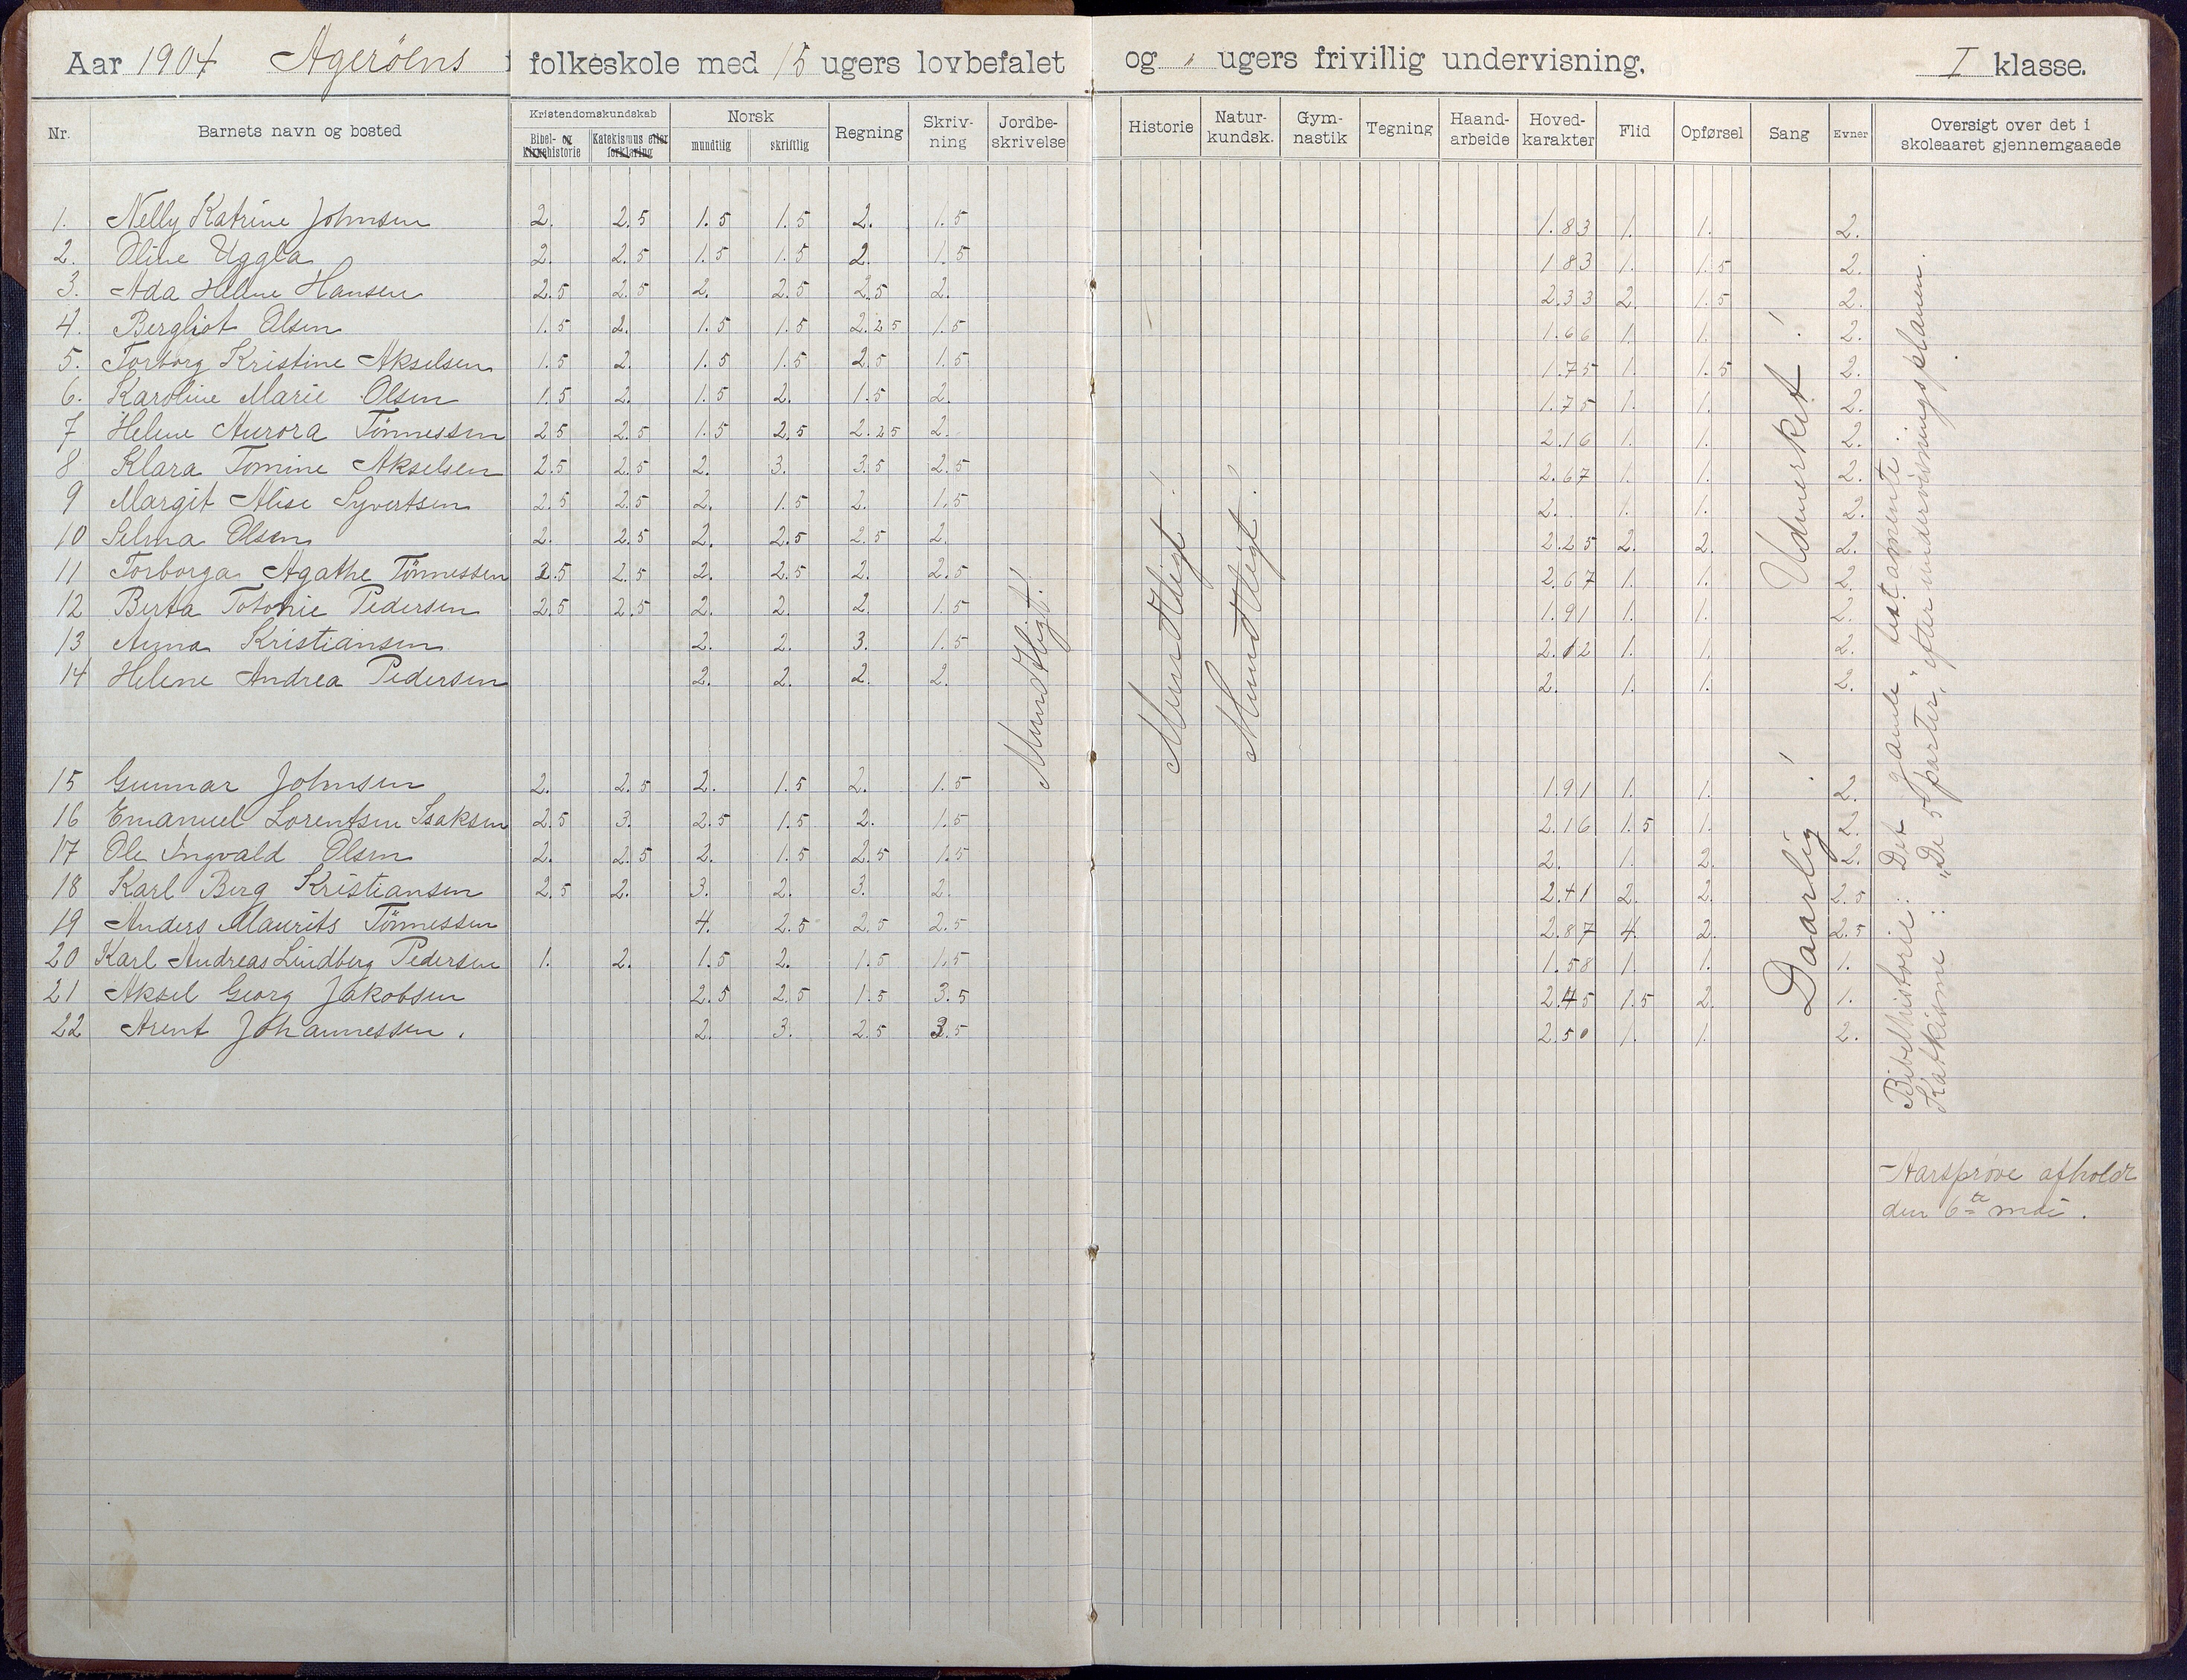 Aar 1904 Agerøens folkeskole med 15 ugers lovbefalet og " ugers frivillig undervisning. I klasse.
Nr. Barnets navn og bosted Kristendomskundskab Norsk Regning Skriv-ning Jordbe-skrivelse Historie Natur-kundsk. Gym-nastik Tegning Haand-arbeide Hoved-karakter Flid Opførsel Sang Evner Oversigt over det i skoleaaret gjennemgaaede
Bibel- og Kirkehistorie Katekismus eller forklaring mundtlig skriftlig
1. Nelly Katrine Johnsen 2. 2.5 1.5 1.5 2. 1.5 1.83 1. 1. 2.
2. Oline Uggla 2. 2.5 1.5 1.5 2. 1.5 1.83 1. 1.5 2.
3. Ada Helene Hansen 2.5 2.5 2. 2.5 2.5 2. 2.33 2. 1.5 2.
4. Bergliot Olsen 1.5 2. 1.5 1.5 2.25 1.5 1.66 1. 1. 2.
5. Torborg Kristine Akselsen 1.5 2. 1.5 1.5 2.5 1.5 1.75 1. 1.5 2.
6. Karoline Marie Olsen 1.5 2. 1.5 2. 1.5 2. 1.75 1. 1. 2.
7 Helene Aurora Tönnessen 2.5 2.5 1.5 2.5 2.25 2. 2.16 1. 1. 2.
8 Klara Tomine Akselsen 2.5 2.5 2. 3. 3.5 2.5 2.67 1. 1. 2.
9 Margit Alise Syvertsen 2.5 2.5 2. 1.5 2. 1.5 2. 1. 1. 2.
10 Selma Olsen 2. 2.5 2. 2.5 2.5 2. 2.25 2. 2. 2.
11 Torborga Agathe Tönnessen 2.5 2.5 2. 2.5 2. 2.5 2.67 1. 1. 2.
12 Berta Totonie Pedersen 2.5 2.5 2. 2. 2. 1.5 1.91 1. 1. 2.
13 Anna Kristiansen 2. 2. 3. 1.5 2.12 1. 1. 2.
14 Helene Andrea Pedersen 2. 2. 2. 2. 2. 1. 1. 2.
Mundtligt!
Mundtligt!
Mundtligt!
Udmerket!
15 Gunnar Johnsen 2. 2.5 2. 1.5 2. 1.5 1.91 1. 1. 2.
16 Emanuel Lorentsen Isaksen 2.5 3. 2.5 1.5 2. 1.5 2.16 1.5 1. 2.
17 Ole Ingvald Olsen 2. 2.5 2. 1.5 2.5 1.5 2. 1. 2. 2.
18 Karl Berg Kristiansen 2.5 2. 3. 2. 3. 2. 2.41 2. 2. 2.5
19 Anders Maurits Tönnessen 4. 2.5 2.5 2.5 2.87 4. 2. 2.5
20 Karl Andreas Lindberg Pedersen 1. 2. 1.5 2. 1.5 1.5 1.58 1. 1. 1.
21 Aksel Georg Jakobsen 2.5 2.5 1.5 3.5 2.45 1.5 2. 1.
22 Arent Johannessen. 2. 3. 2.5 3.5 2.50 1. 1. 2.
Daarlig!
Bibelhistorie: Det gamle testamente.
Katkisme: "De 5 parter," efter undervisningsplanen.
Aarsprøve afholdt
den 6te mai.